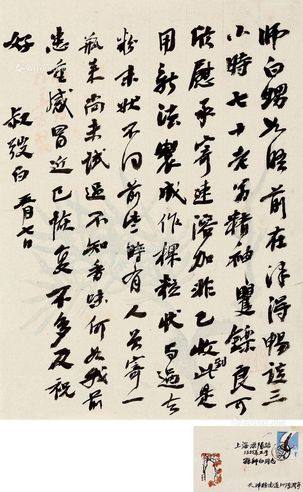 师白甥如晤前在津得畅谈三
小时七十老翁精神矍铄良可
欣慰承寄速溶咖啡已收到此是
用新法制成作粿粒状与过去
粉末状不同前些时有人曾寄一
瓶来尚未试过不知香味何如我前
患重感冒近已恢复不多及祝
好
叔弢白 五月七日
上海溧阳路
孙师白同志